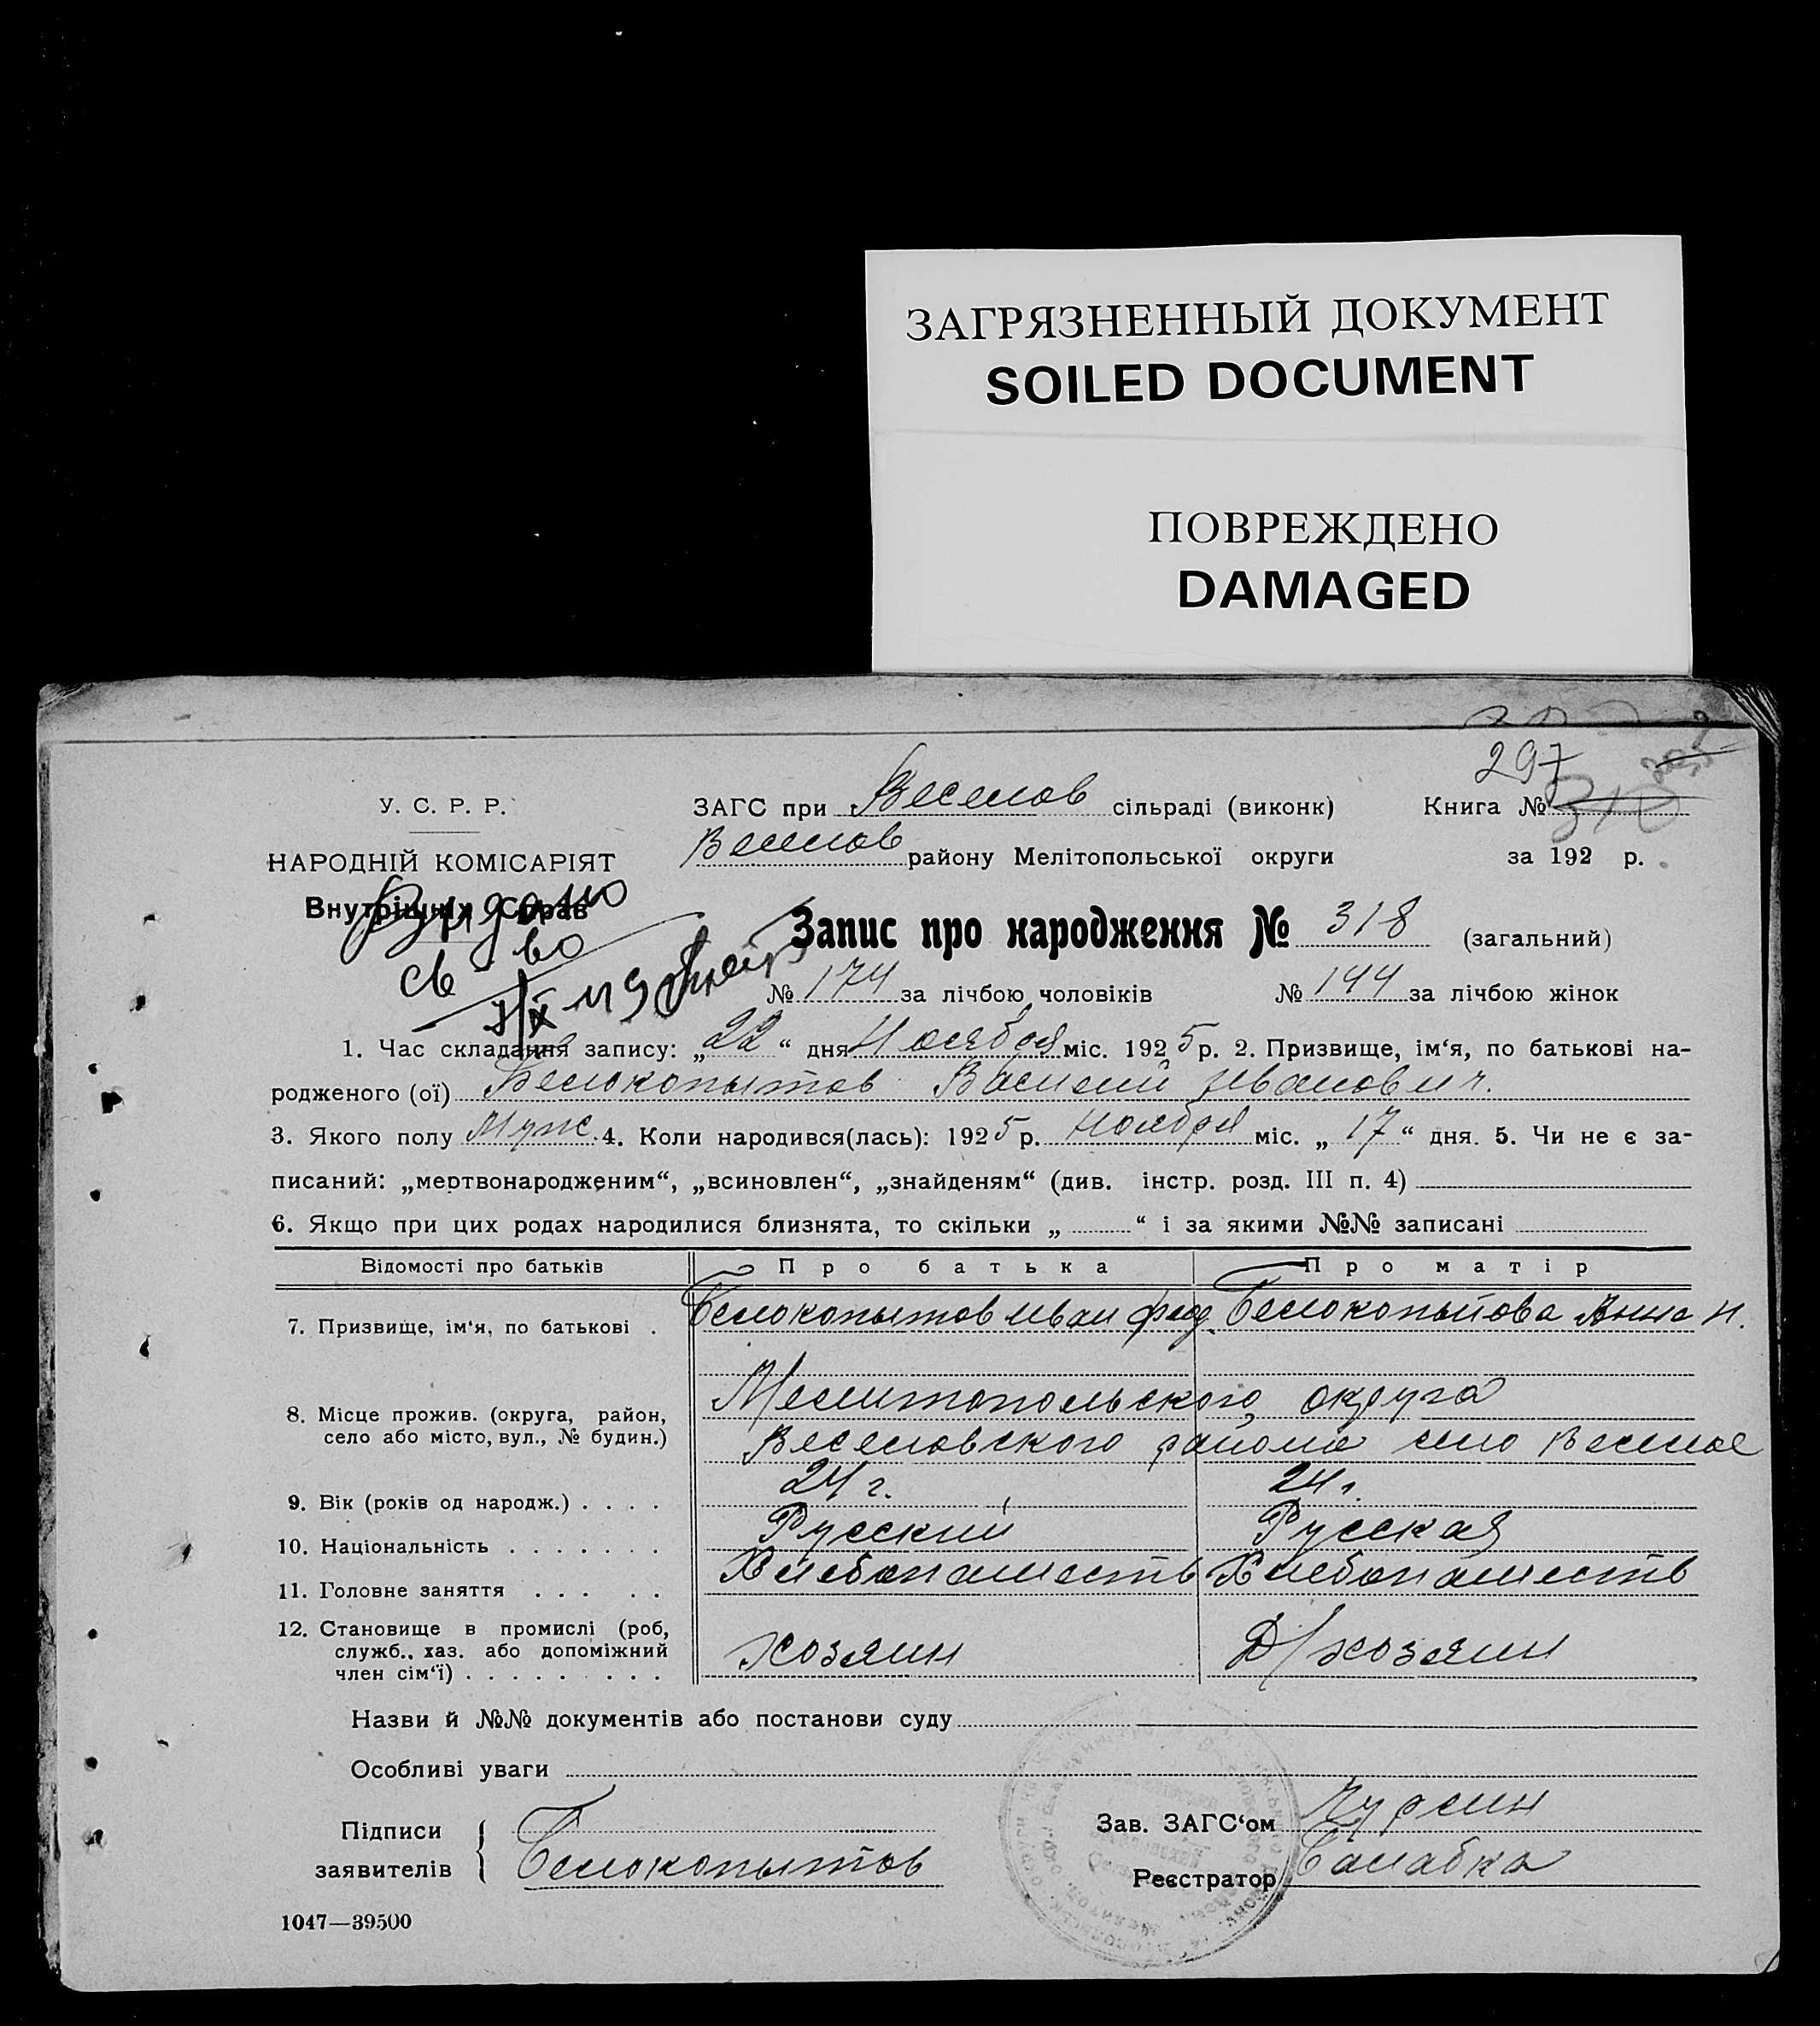 ЗАГРЯЗНЕННЫЙ ДОКУМЕНТ
SOILED DOCUMENT
ПОВРЕЖДЕНО
DAMAGED
297
У. С. Р. Р.
ЗАГС при Веселов сільраді (виконк) Книга №
НАРОДНІЙ КОМІСАРІЯТ
Веселов району Мелітопольської округи за 192 р.
Внутрішніх Справ
Запис про народження № 318 (загальний)
св-во
№ 174 за лічбою чоловіків № 144 за лічбою жінок
1. Час складання запису: „22“ дня Ноября міс. 1925 р. 2. Призвище, ім‘я, по батькові на-
родженого (ої) Белокопытов Василий Иванович.
3. Якого полу Муж. 4. Коли народився(лась): 1925 р. Ноября міс. „17“ дня. 5. Чи не є за-
писаний: „мертвонародженим“, „всиновлен“, „знайденям“ (див. інстр. розд. III п. 4)
6. Якщо при цих родах народилися близнята, то скільки „ “ і за якими №№ записані
Відомості про батьків Про батька Про матір
7. Призвище, ім‘я, по батькові . Белокопытов Иван Фед. Белокопытова Анна И.
Мелитопольского округа
8. Місце прожив. (округа, район,
село або місто, вул., № будин.) Веселовского района село Веселое
9. Вік (років од народж.) . . . . 24 г. 24 г.
10. Національність . . . . . . . Русский Русская
11. Головне заняття . . . . . Хлебопашеств Хлебопашеств
12. Становище в промислі (роб,
служб., хаз. або допоміжний
член сім‘ї) . . . . . . . . . хозяин Д/хозяин
Назви й №№ документів або постанови суду
Особливі уваги
Підписи
заявителів Белокопытов
Зав. ЗАГС‘ом
Реєстратор
1047—39500